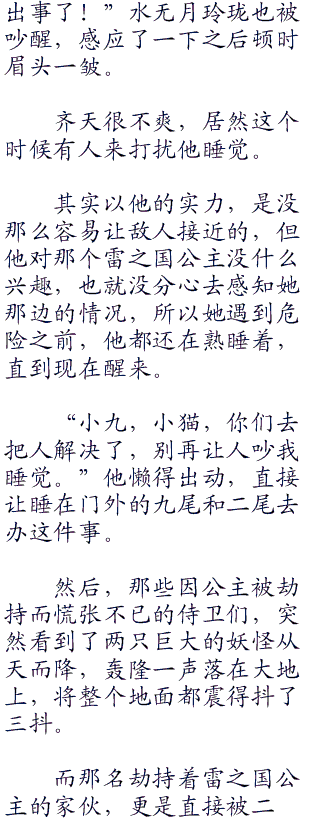 出事了！”水无月玲珑也被
吵醒，感应了一下之后顿时
眉头一皱。
齐天很不爽，居然这个
时候有人来打扰他睡觉。
其实以他的实力，是没
那么容易让敌人接近的，但
他对那个雷之国公主没什么
兴趣，也就没分心去感知她
那边的情况，所以她遇到危
险之前，他都还在熟睡着，
直到现在醒来。
“小九，小猫，你们去
把人解决了，别再让人吵我
睡觉。”他懒得出动，直接
让睡在门外的九尾和二尾去
办这件事。
然后，那些因公主被劫
持而慌张不已的侍卫们，突
然看到了两只巨大的妖怪从
天而降，轰隆一声落在大地
上，将整个地面都震得抖了
三抖。
而那名劫持着雷之国公
主的家伙，更是直接被二